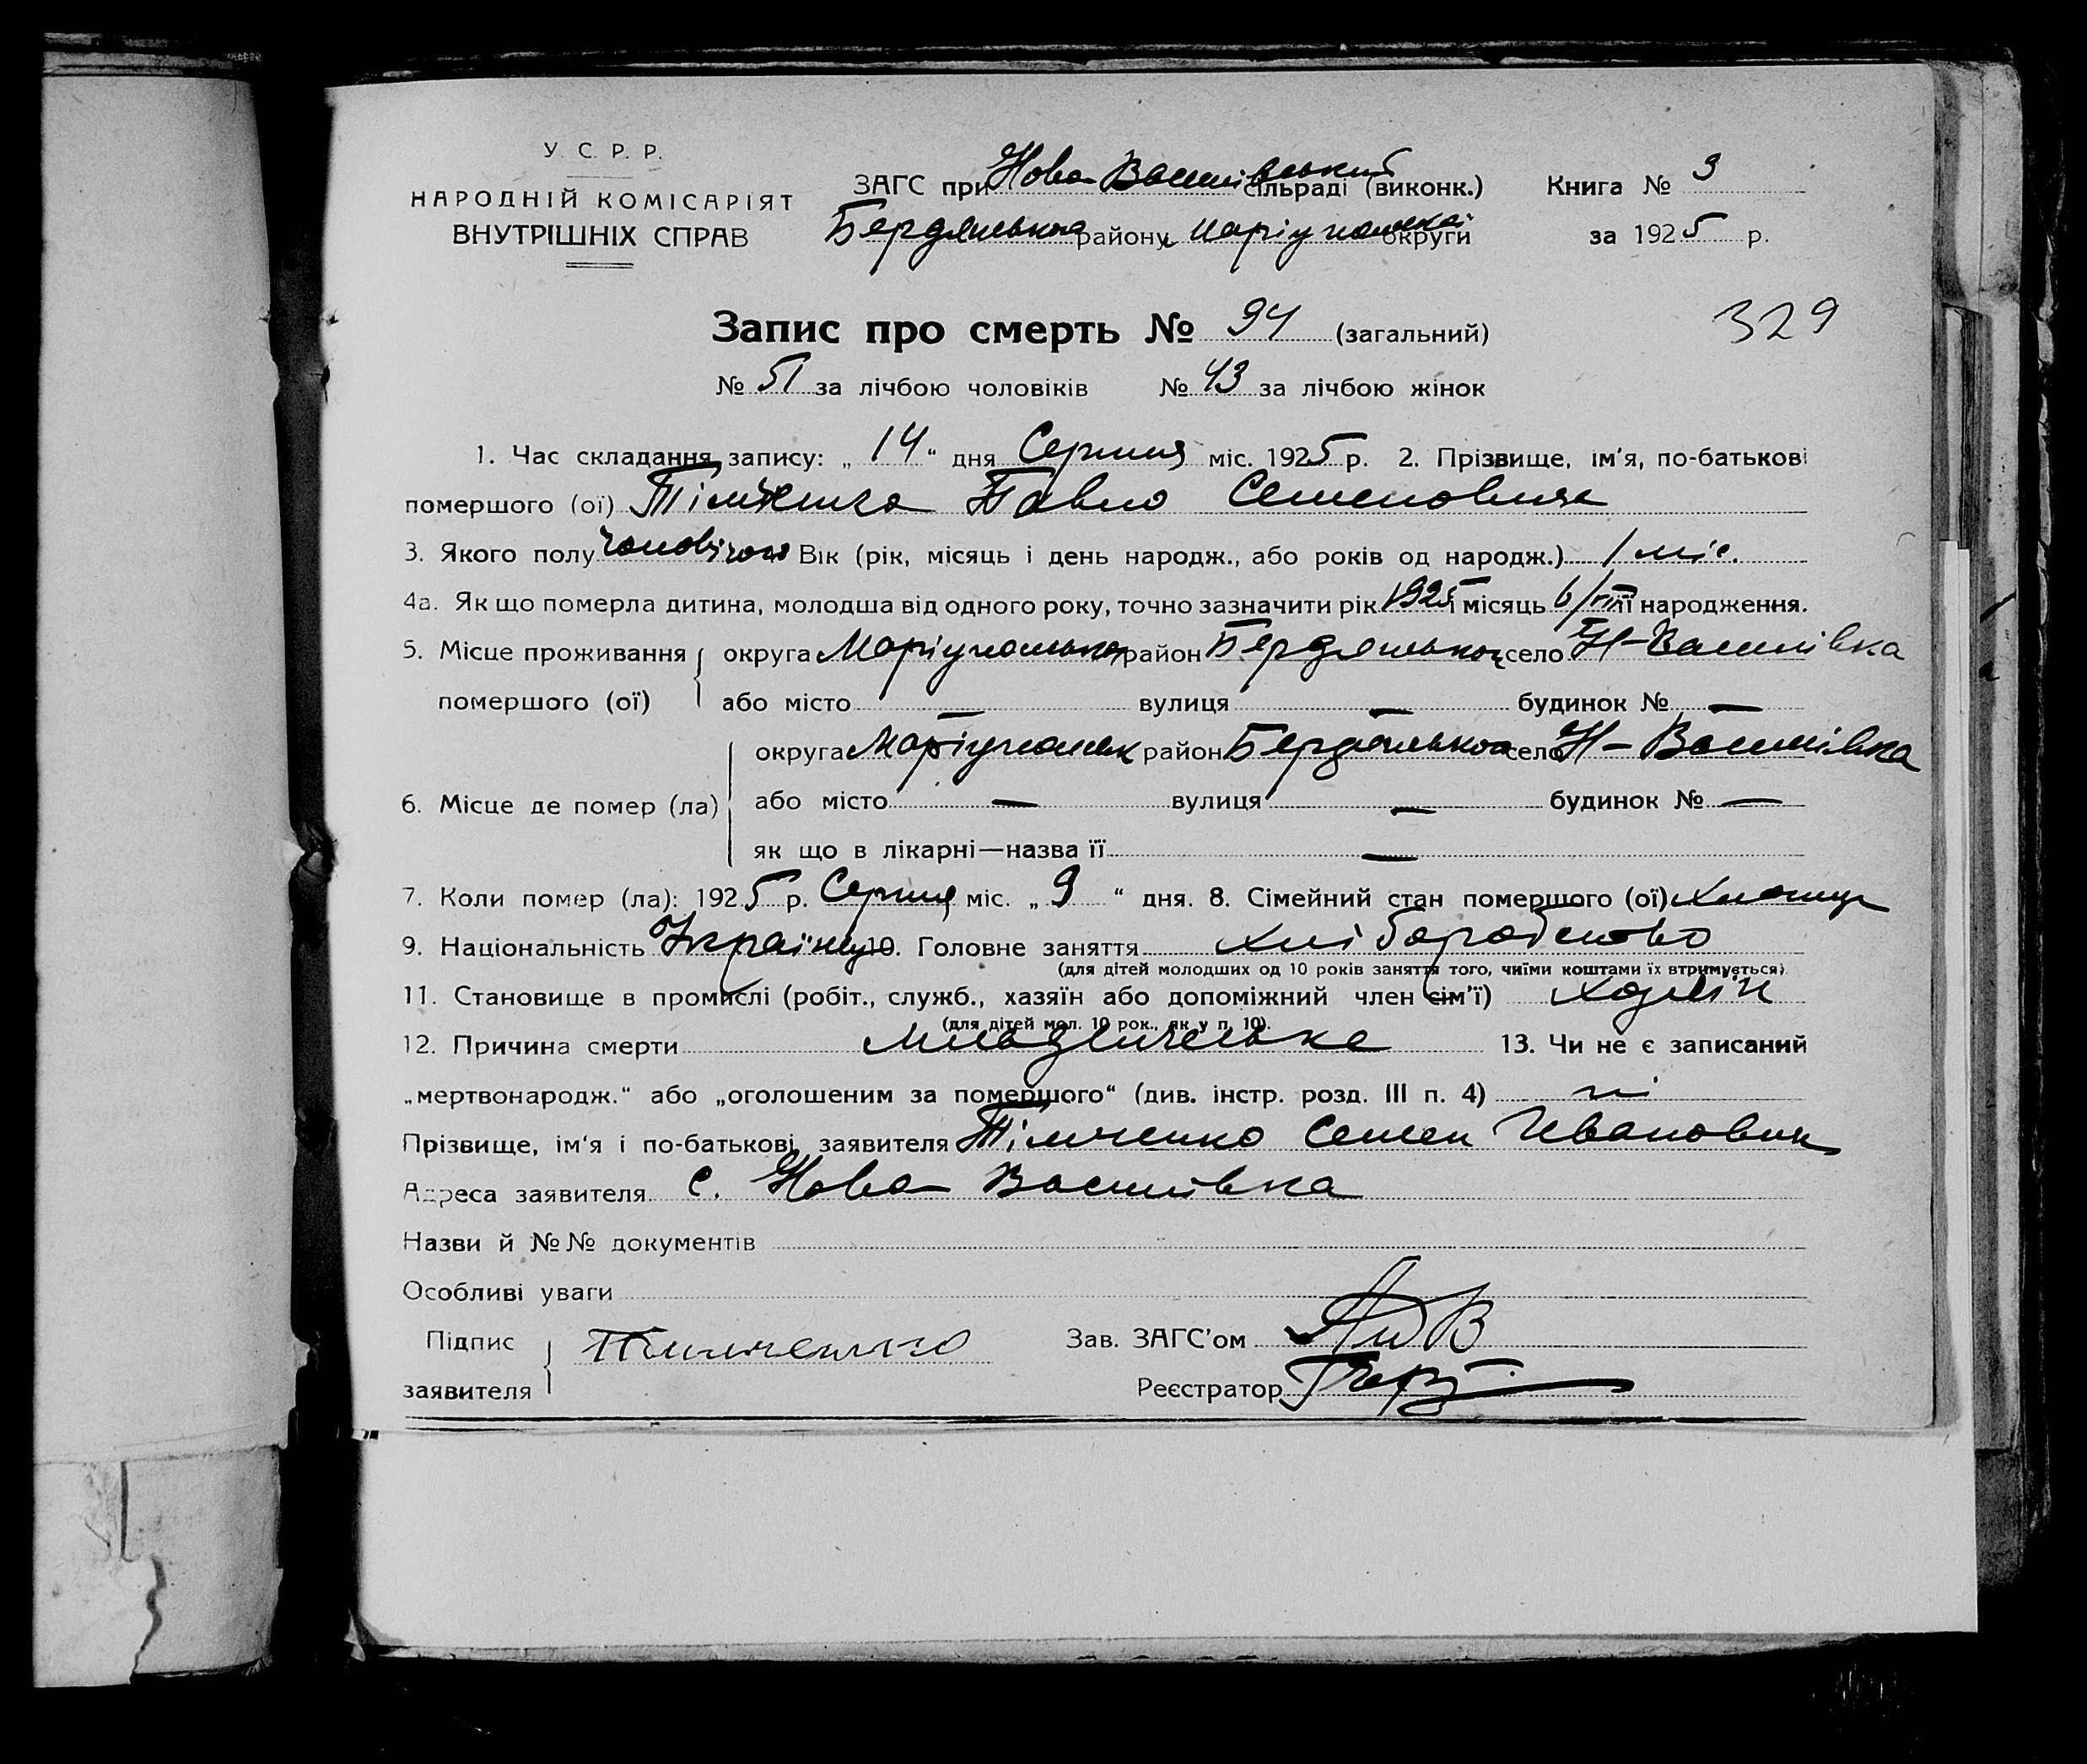 У. С. Р. Р.
НАРОДНІЙ КОМІСАРІЯТ
ВНУТРІШНІХ СПРАВ
ЗАГС при Ново-Василівський сільраді (виконк.)
Бердянського району Маріупольської округи
Книга № 3
за 1925 р.
329
Запис про смерть № 94 (загальний)
№ 51 за лічбою чоловіків № 43 за лічбою жінок
1. Час складання запису: „ 14 “ дня Серпня міс. 1925 р. 2. Прізвище, ім'я, по-батькові
помершого (ої) Тімченко Павло Семенович
3. Якого полу чоловічого Вік (рік, місяць і день народж., або років од народж.) 1 міс.
4а. Як що померла дитина, молодша від одного року, точно зазначити рік 1925 і місяць 6/VII її народження.
5. Місце проживання округа Маріупольська район Бердянського село Н-Василівка
помершого (ої) або місто — вулиця — будинок № —
округа Маріупольськ район Бердянського село Н-Василівка
6. Місце де помер (ла) або місто — вулиця — будинок № —
як що в лікарні—назва її —
7. Коли помер (ла): 1925 р. Серпня міс. „ 9 “ дня. 8. Сімейний стан помершого (ої) Хлопець
9. Національність Українец 10. Головне заняття хліборобство
(для дітей молодших од 10 років заняття того, чиїми коштами їх втримується).
11. Становище в промислі (робіт., служб., хазяїн або допоміжний член сім'ї) хазяїн
(для дітей мол. 10 рок., як у п. 10).
12. Причина смерти 13. Чи не є записаний
„мертвонародж.“ або „оголошеним за помершого“ (див. інстр. розд. III п. 4) ні
Прізвище, ім'я і по-батькові заявителя Тімченко Семен Іванович
Адреса заявителя с. Ново Василівка
Назви й №№ документів
Особливі уваги
Підпис
заявителя Тимченко
Зав. ЗАГС'ом
Реєстратор